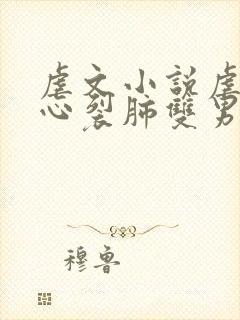 虐文小说虐
心裂肺雙男
穆鲁